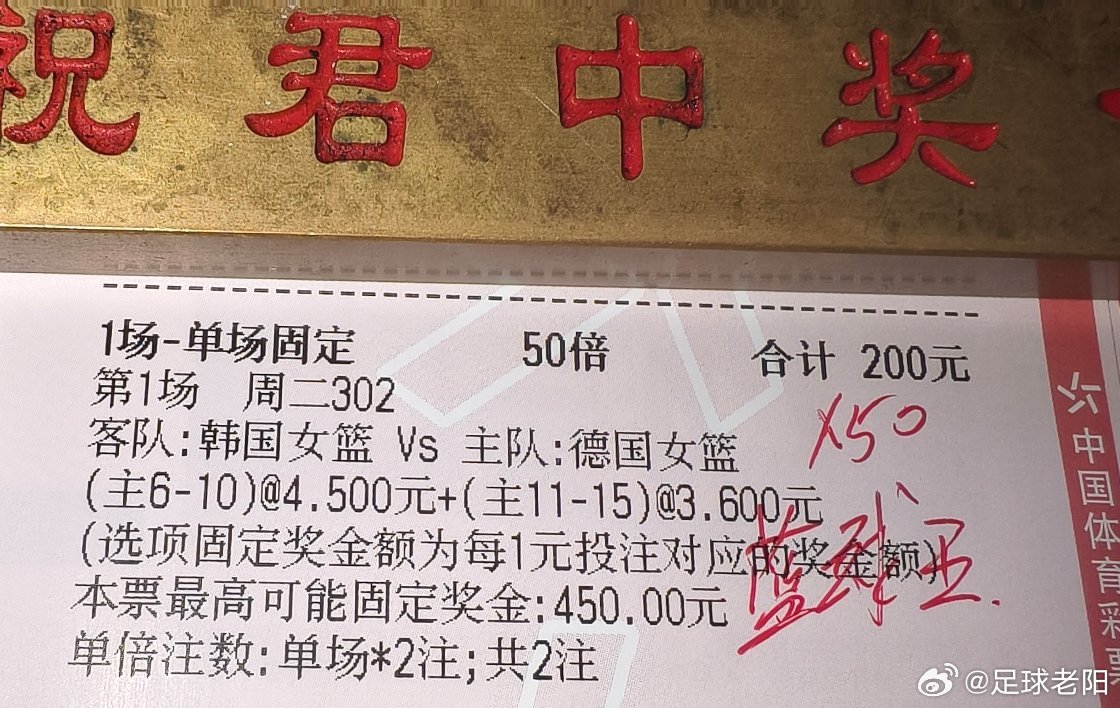 祝君中奖
1场-单场固定 50倍 合计 200元
第1场 周二302
客队:韩国女篮 Vs 主队:德国女篮
(主6-10)@4.500元+(主11-15)@3.600元
(选项固定奖金额为每1元投注对应的奖金额)
本票最高可能固定奖金:450.00元
单倍注数:单场*2注;共2注
X50
中国体育彩票
@足球老阳